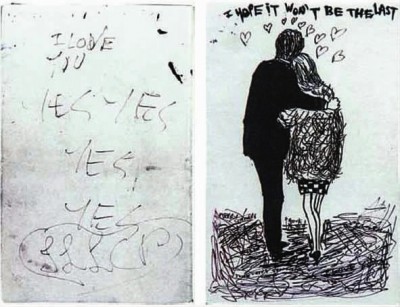 I LOVE
YOU
YES YES
YES,
YES
I HOPE IT WON'T BE THE LAST